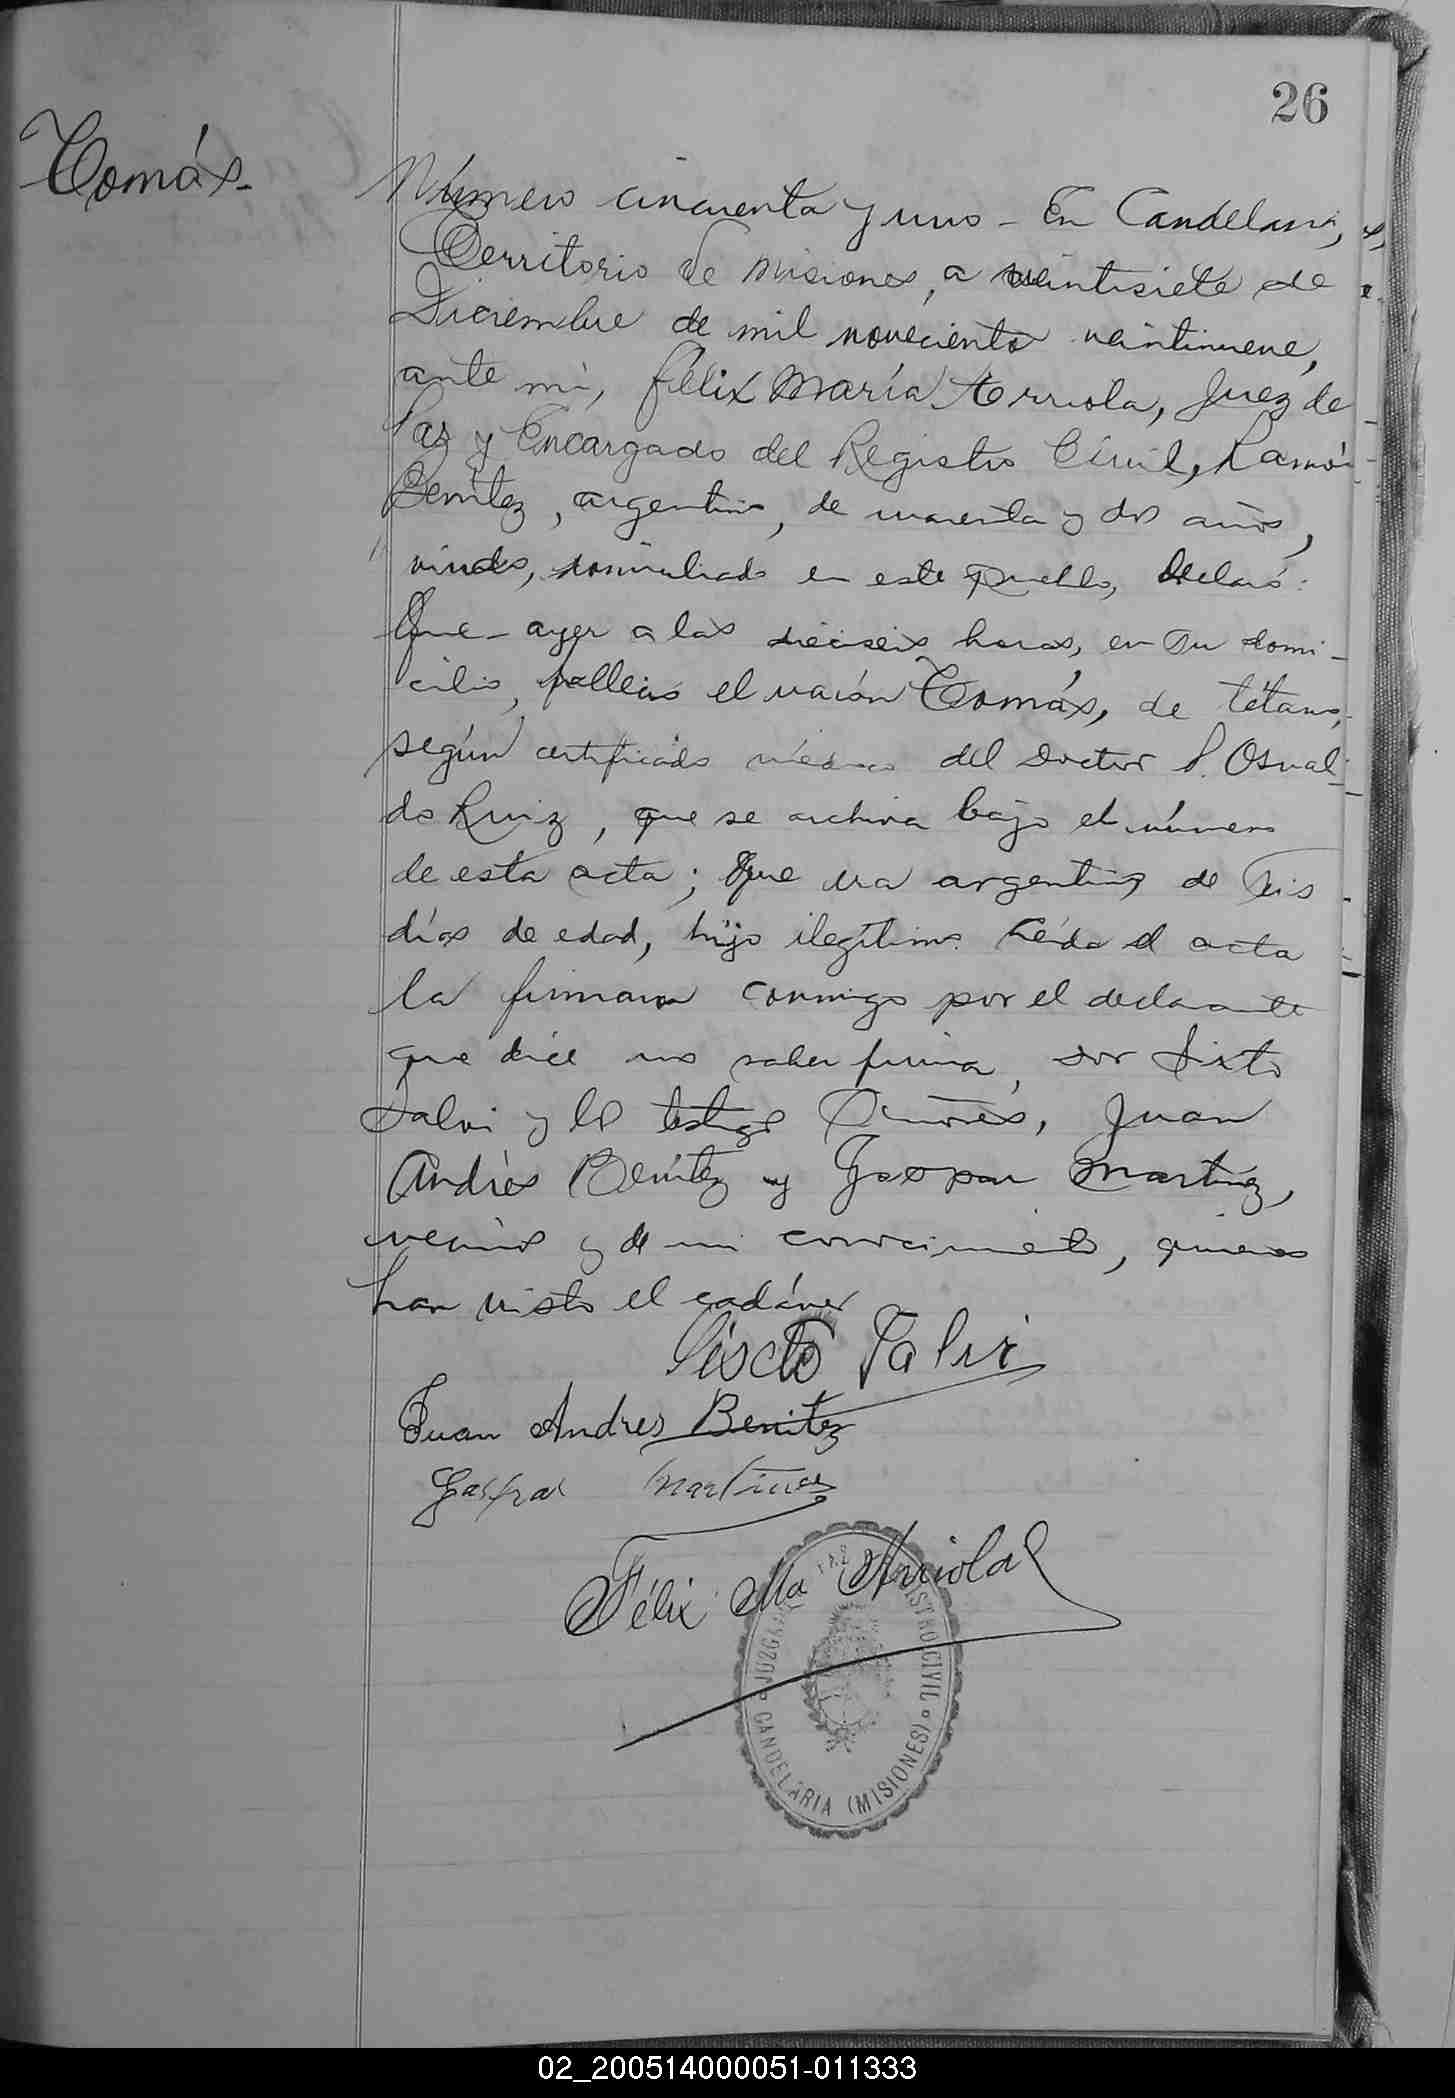 26
Tomás.
Número cincuenta y uno - En Candelaria,
Territorio de Misiones, a veintisiete de
Diciembre de mil novecientos veintinueve,
ante mí, Félix María Arriola, Juez de
Paz y Encargado del Registro Civil, Ramón
Benítez, argentino, de cuarenta y dos años,
viudo, domiciliado en este pueblo, declaró:
Que ayer a las dieciseis horas, en su domi-
cilio, falleció el varón Tomás, de tétano,
según certificado médico del Doctor P. Osval-
do Ruiz, que se archiva bajo el número
de esta acta; Que era argentino, de seis
días de edad, hijo ilegítimo. Leída el acta
la firmaron conmigo por el declarante
que dice no saber firmar, Don Sixto
Salvi y los testigos Señores, Juan
Andrés Benítez y Gaspar Martínez,
vecinos y de mi conocimiento, quienes
han visto el cadáver
Siscto Falvi
Juan Andres Benitez
Gaspar Martinez
Félix Ma Arriola
JUZGADO DE PAZ REGISTRO CIVIL
CANDELARIA (MISIONES)
02_200514000051-011333